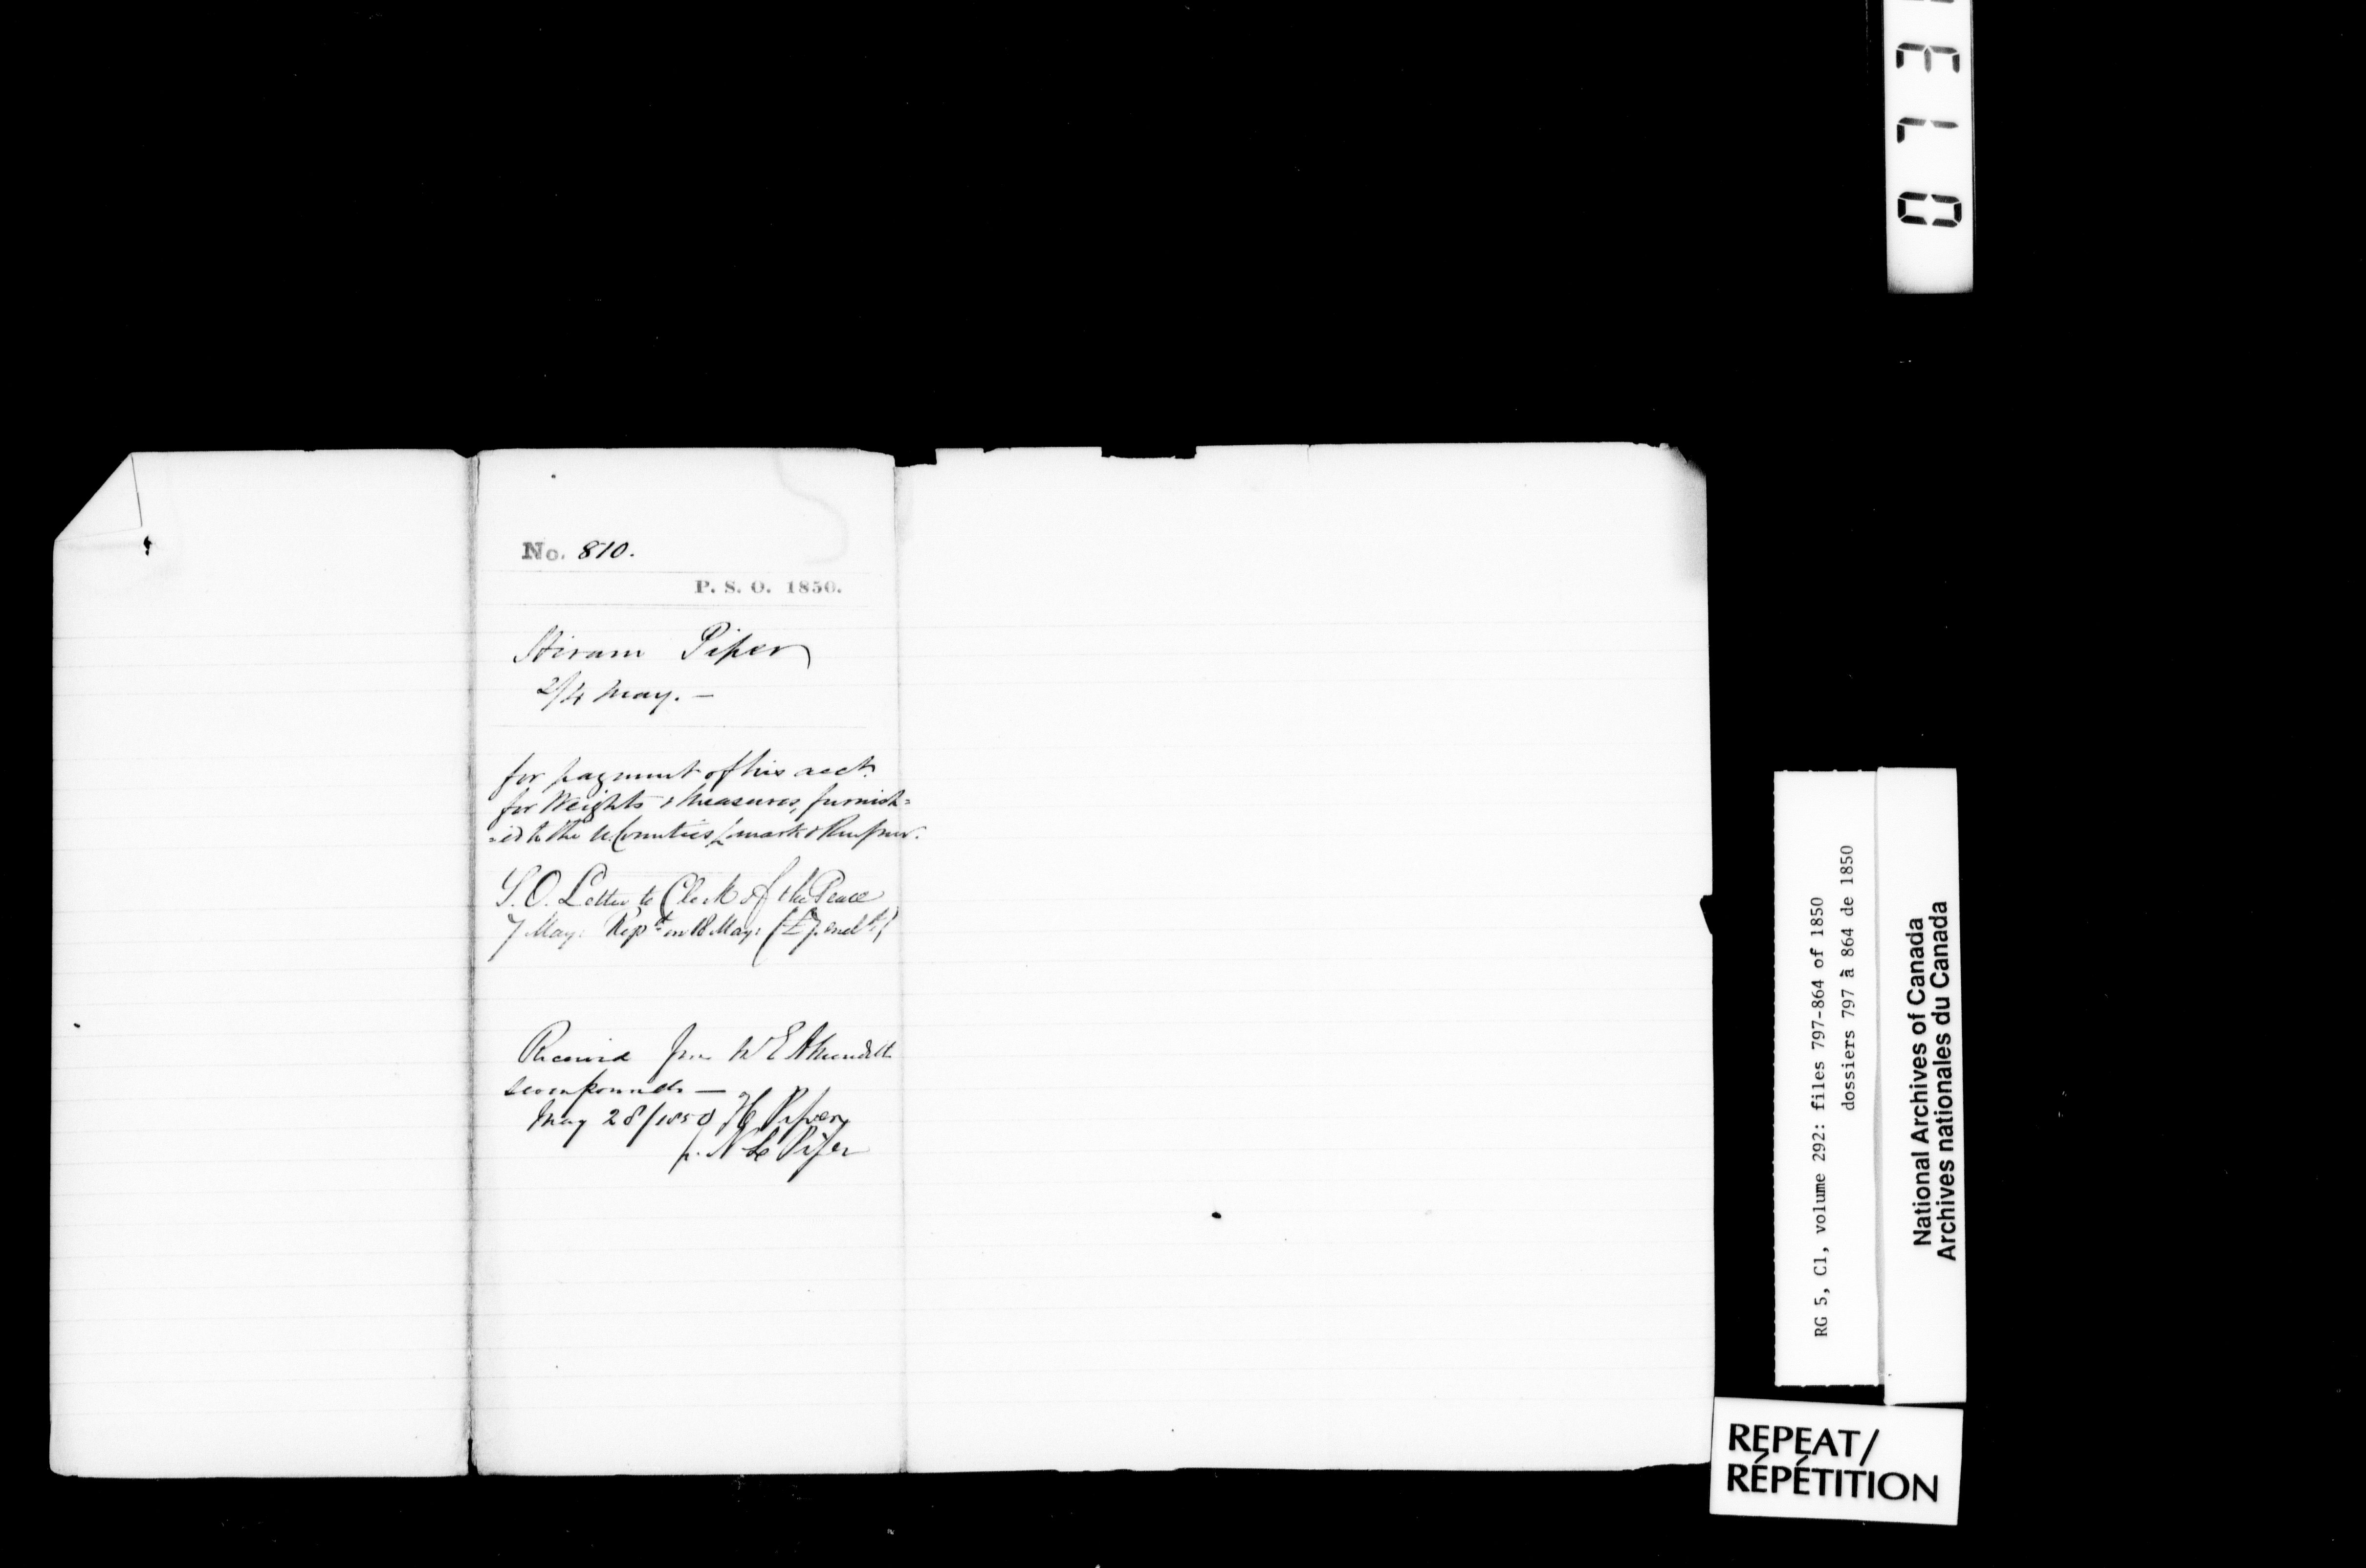 No. 810.
P. S. O. 1850.
Hiram Piper
2/4 May. —
for payment of his acct.
for Weights & Measures, furnish=
=ed to the U. Counties Lanark & Renfrew.
S. O. Letter to Clerk of the Peace
7 May: Repd. on 18 May: (£7. encld.)
Received from
seven pounds —
May 28/1850 H Piper
p. N L Piper
RG 5, C1, volume 292: files 797-864 of 1850
dossiers 797 à 864 de 1850
National Archives of Canada
Archives nationales du Canada
REPEAT/
RÉPÉTITION